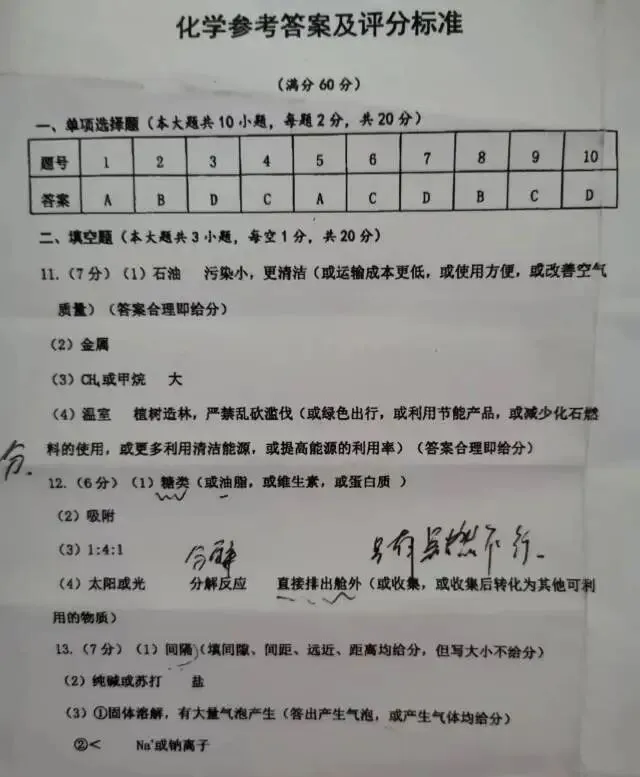 化学参考答案及评分标准
（满分60分）
一、单项选择题（本大题共10小题，每题2分，共20分）
题号 1 2 3 4 5 6 7 8 9 10
答案 A B D C A C D B C D
二、填空题（本大题共3小题，每空1分，共20分）
11.（7分）（1）石油 污染小，更清洁（或运输成本更低，或使用方便，或改善空气
质量）（答案合理即给分）
（2）金属
（3）CH₄或甲烷 大
（4）温室 植树造林，严禁乱砍滥伐（或绿色出行，或利用节能产品，或减少化石燃
料的使用，或更多利用清洁能源，或提高能源的利用率）（答案合理即给分）
分.
12.（6分）（1）糖类（或油脂，或维生素，或蛋白质 ）
（2）吸附
（3）1:4:1
分解 只有 不行.
（4）太阳或光 分解反应 直接排出舱外（或收集，或收集后转化为其他可利
用的物质）
13.（7分）（1）间隔（填间隙、间距、远近、距离均给分，但写大小不给分）
（2）纯碱或苏打 盐
（3）①固体溶解，有大量气泡产生（答出产生气泡，或产生气体均给分）
②< Na⁺或钠离子